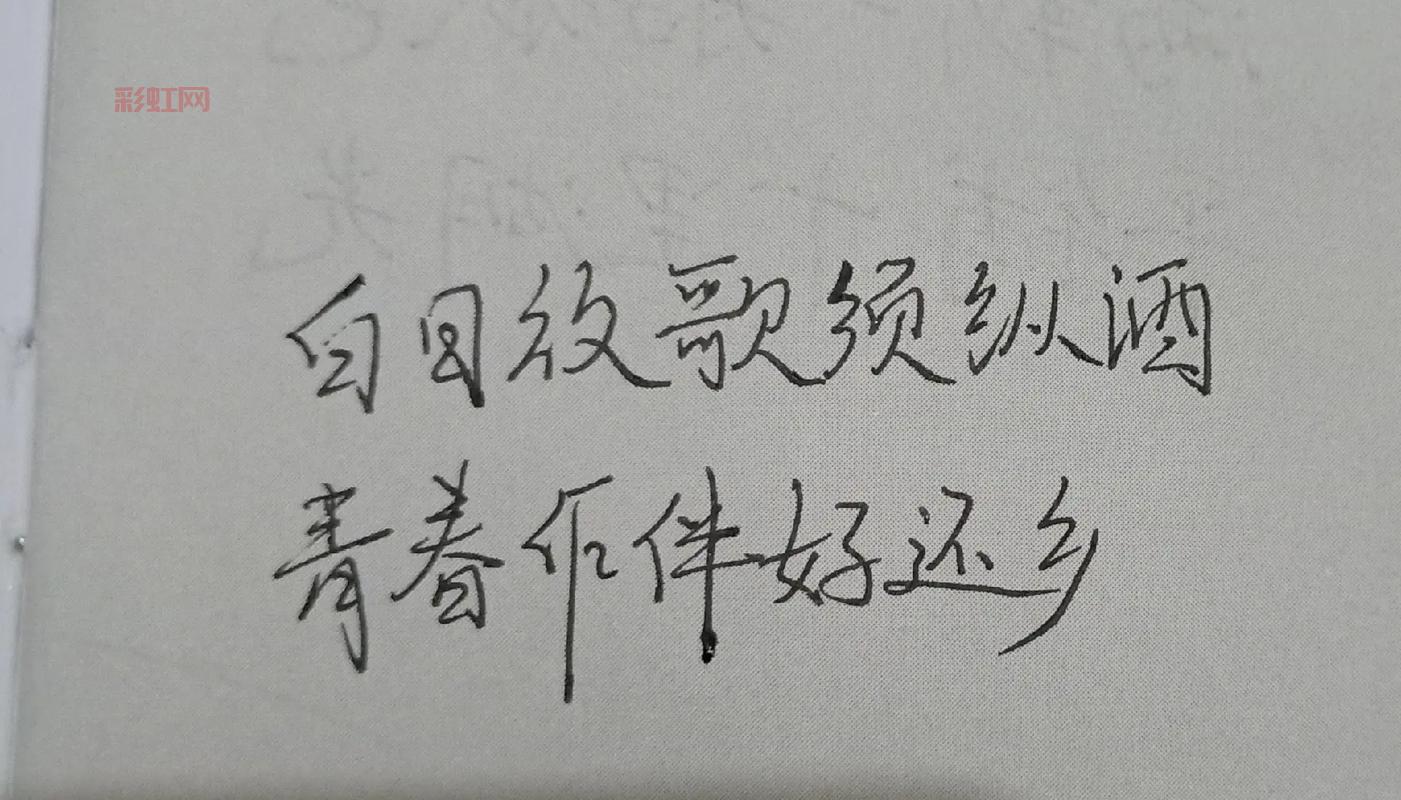 彩虹网
白日放歌须纵酒
青春作伴好还乡